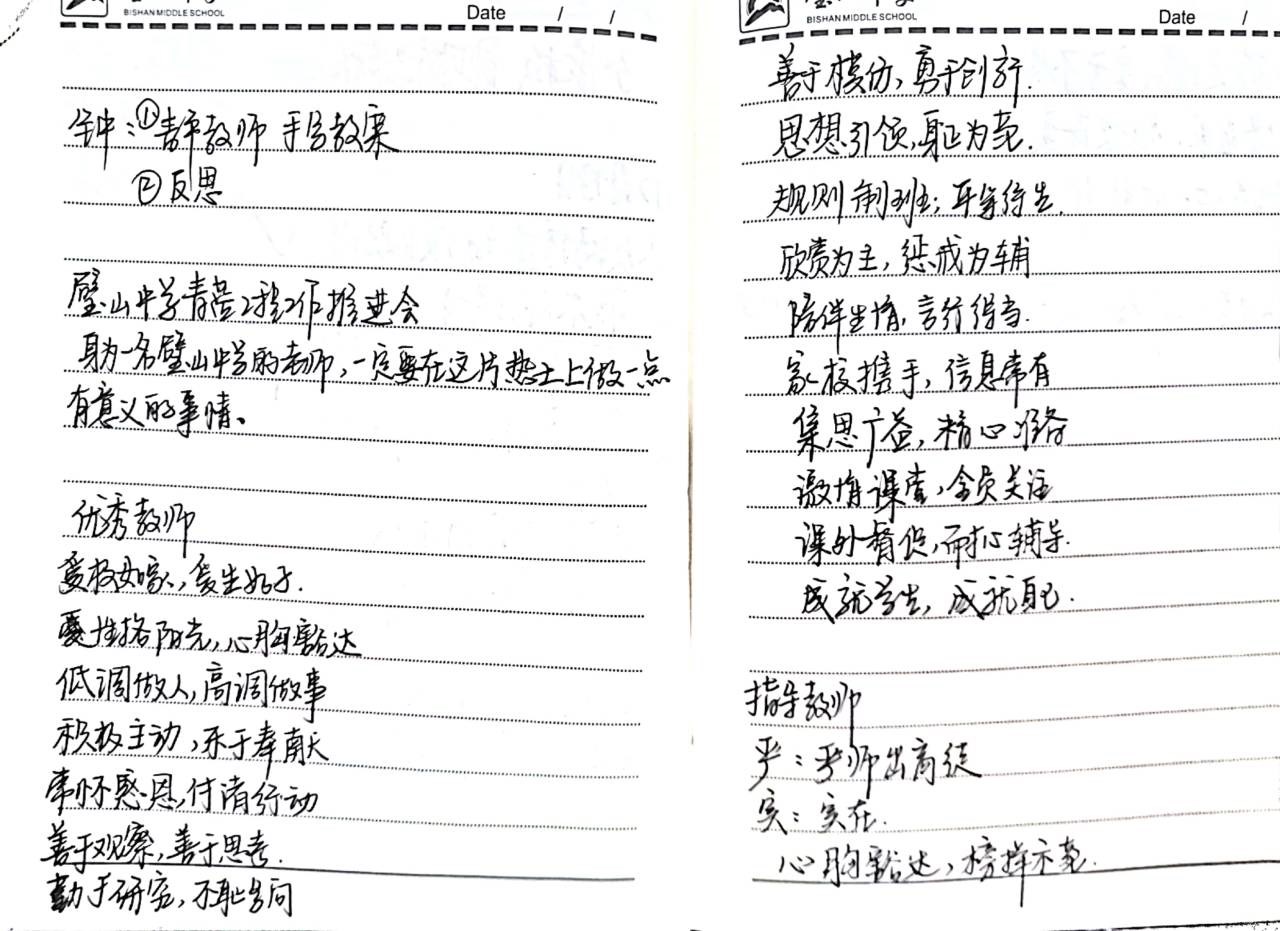 BISHAN MIDDLE SCHOOL
Date / /
钟：①青年教师 手写教案
②反思
璧山中学青蓝工程工作推进会
身为一名璧山中学的老师，一定要在这片热土上做一点
有意义的事情、
优秀教师
爱校如家，爱生如子.
性格阳光，心胸豁达
低调做人，高调做事
积极主动，乐于奉献
常怀感恩，付诸行动
善于观察，善于思考.
勤于研究，不耻多问
BISHAN MIDDLE SCHOOL
Date /
善于模仿，勇于创新.
思想引领，身正为范.
规则制班；
欣赏为主，惩戒为辅
陪伴生情，言行得当.
家校携手，信息常有
集思广益，精心准备
激情课堂，全员关注
课外督促，耐心辅导.
成就学生，成就自己.
指导教师
严：严师出高徒
实：实在.
心胸豁达，榜样示范.